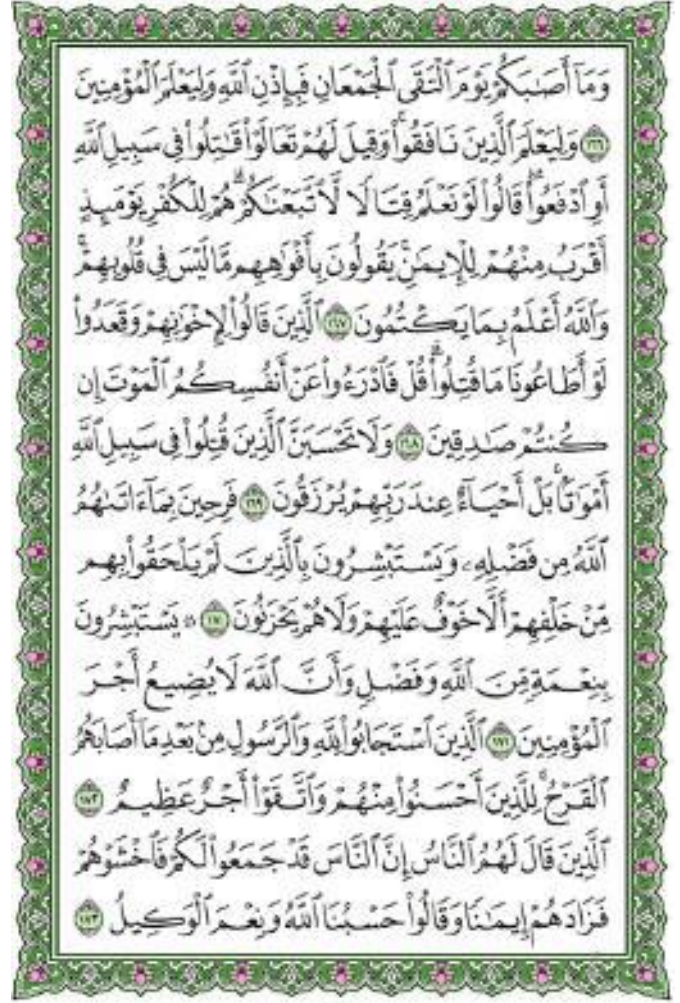 وَمَآ أَصَٰبَكُمۡ يَوۡمَ ٱلۡتَقَى ٱلۡجَمۡعَانِ فَبِإِذۡنِ ٱللَّهِ وَلِيَعۡلَمَ ٱلۡمُؤۡمِنِينَ
١٦٦ وَلِيَعۡلَمَ ٱلَّذِينَ نَافَقُواْۚ وَقِيلَ لَهُمۡ تَعَالَوۡاْ قَٰتِلُواْ فِي سَبِيلِ ٱللَّهِ
أَوِ ٱدۡفَعُواْۖ قَالُواْ لَوۡ نَعۡلَمُ قِتَالٗا لَّٱتَّبَعۡنَٰكُمۡۗ هُمۡ لِلۡكُفۡرِ يَوۡمَئِذٍ
أَقۡرَبُ مِنۡهُمۡ لِلۡإِيمَٰنِۚ يَقُولُونَ بِأَفۡوَٰهِهِم مَّا لَيۡسَ فِي قُلُوبِهِمۡۚ
وَٱللَّهُ أَعۡلَمُ بِمَا يَكۡتُمُونَ ١٦٧ ٱلَّذِينَ قَالُواْ لِإِخۡوَٰنِهِمۡ وَقَعَدُواْ
لَوۡ أَطَاعُونَا مَا قُتِلُواْۗ قُلۡ فَٱدۡرَءُواْ عَنۡ أَنفُسِكُمُ ٱلۡمَوۡتَ إِن
كُنتُمۡ صَٰدِقِينَ ١٦٨ وَلَا تَحۡسَبَنَّ ٱلَّذِينَ قُتِلُواْ فِي سَبِيلِ ٱللَّهِ
أَمۡوَٰتَۢاۚ بَلۡ أَحۡيَآءٌ عِندَ رَبِّهِمۡ يُرۡزَقُونَ ١٦٩ فَرِحِينَ بِمَآ ءَاتَىٰهُمُ
ٱللَّهُ مِن فَضۡلِهِۦ وَيَسۡتَبۡشِرُونَ بِٱلَّذِينَ لَمۡ يَلۡحَقُواْ بِهِم
مِّنۡ خَلۡفِهِمۡ أَلَّا خَوۡفٌ عَلَيۡهِمۡ وَلَا هُمۡ يَحۡزَنُونَ ١٧٠ ۞ يَسۡتَبۡشِرُونَ
بِنِعۡمَةٖ مِّنَ ٱللَّهِ وَفَضۡلٖ وَأَنَّ ٱللَّهَ لَا يُضِيعُ أَجۡرَ
ٱلۡمُؤۡمِنِينَ ١٧١ ٱلَّذِينَ ٱسۡتَجَابُواْ لِلَّهِ وَٱلرَّسُولِ مِنۢ بَعۡدِ مَآ أَصَابَهُمُ
ٱلۡقَرۡحُۚ لِلَّذِينَ أَحۡسَنُواْ مِنۡهُمۡ وَٱتَّقَوۡاْ أَجۡرٌ عَظِيمٌ ١٧٢
ٱلَّذِينَ قَالَ لَهُمُ ٱلنَّاسُ إِنَّ ٱلنَّاسَ قَدۡ جَمَعُواْ لَكُمۡ فَٱخۡشَوۡهُمۡ
فَزَادَهُمۡ إِيمَٰنٗا وَقَالُواْ حَسۡبُنَا ٱللَّهُ وَنِعۡمَ ٱلۡوَكِيلُ ١٧٣